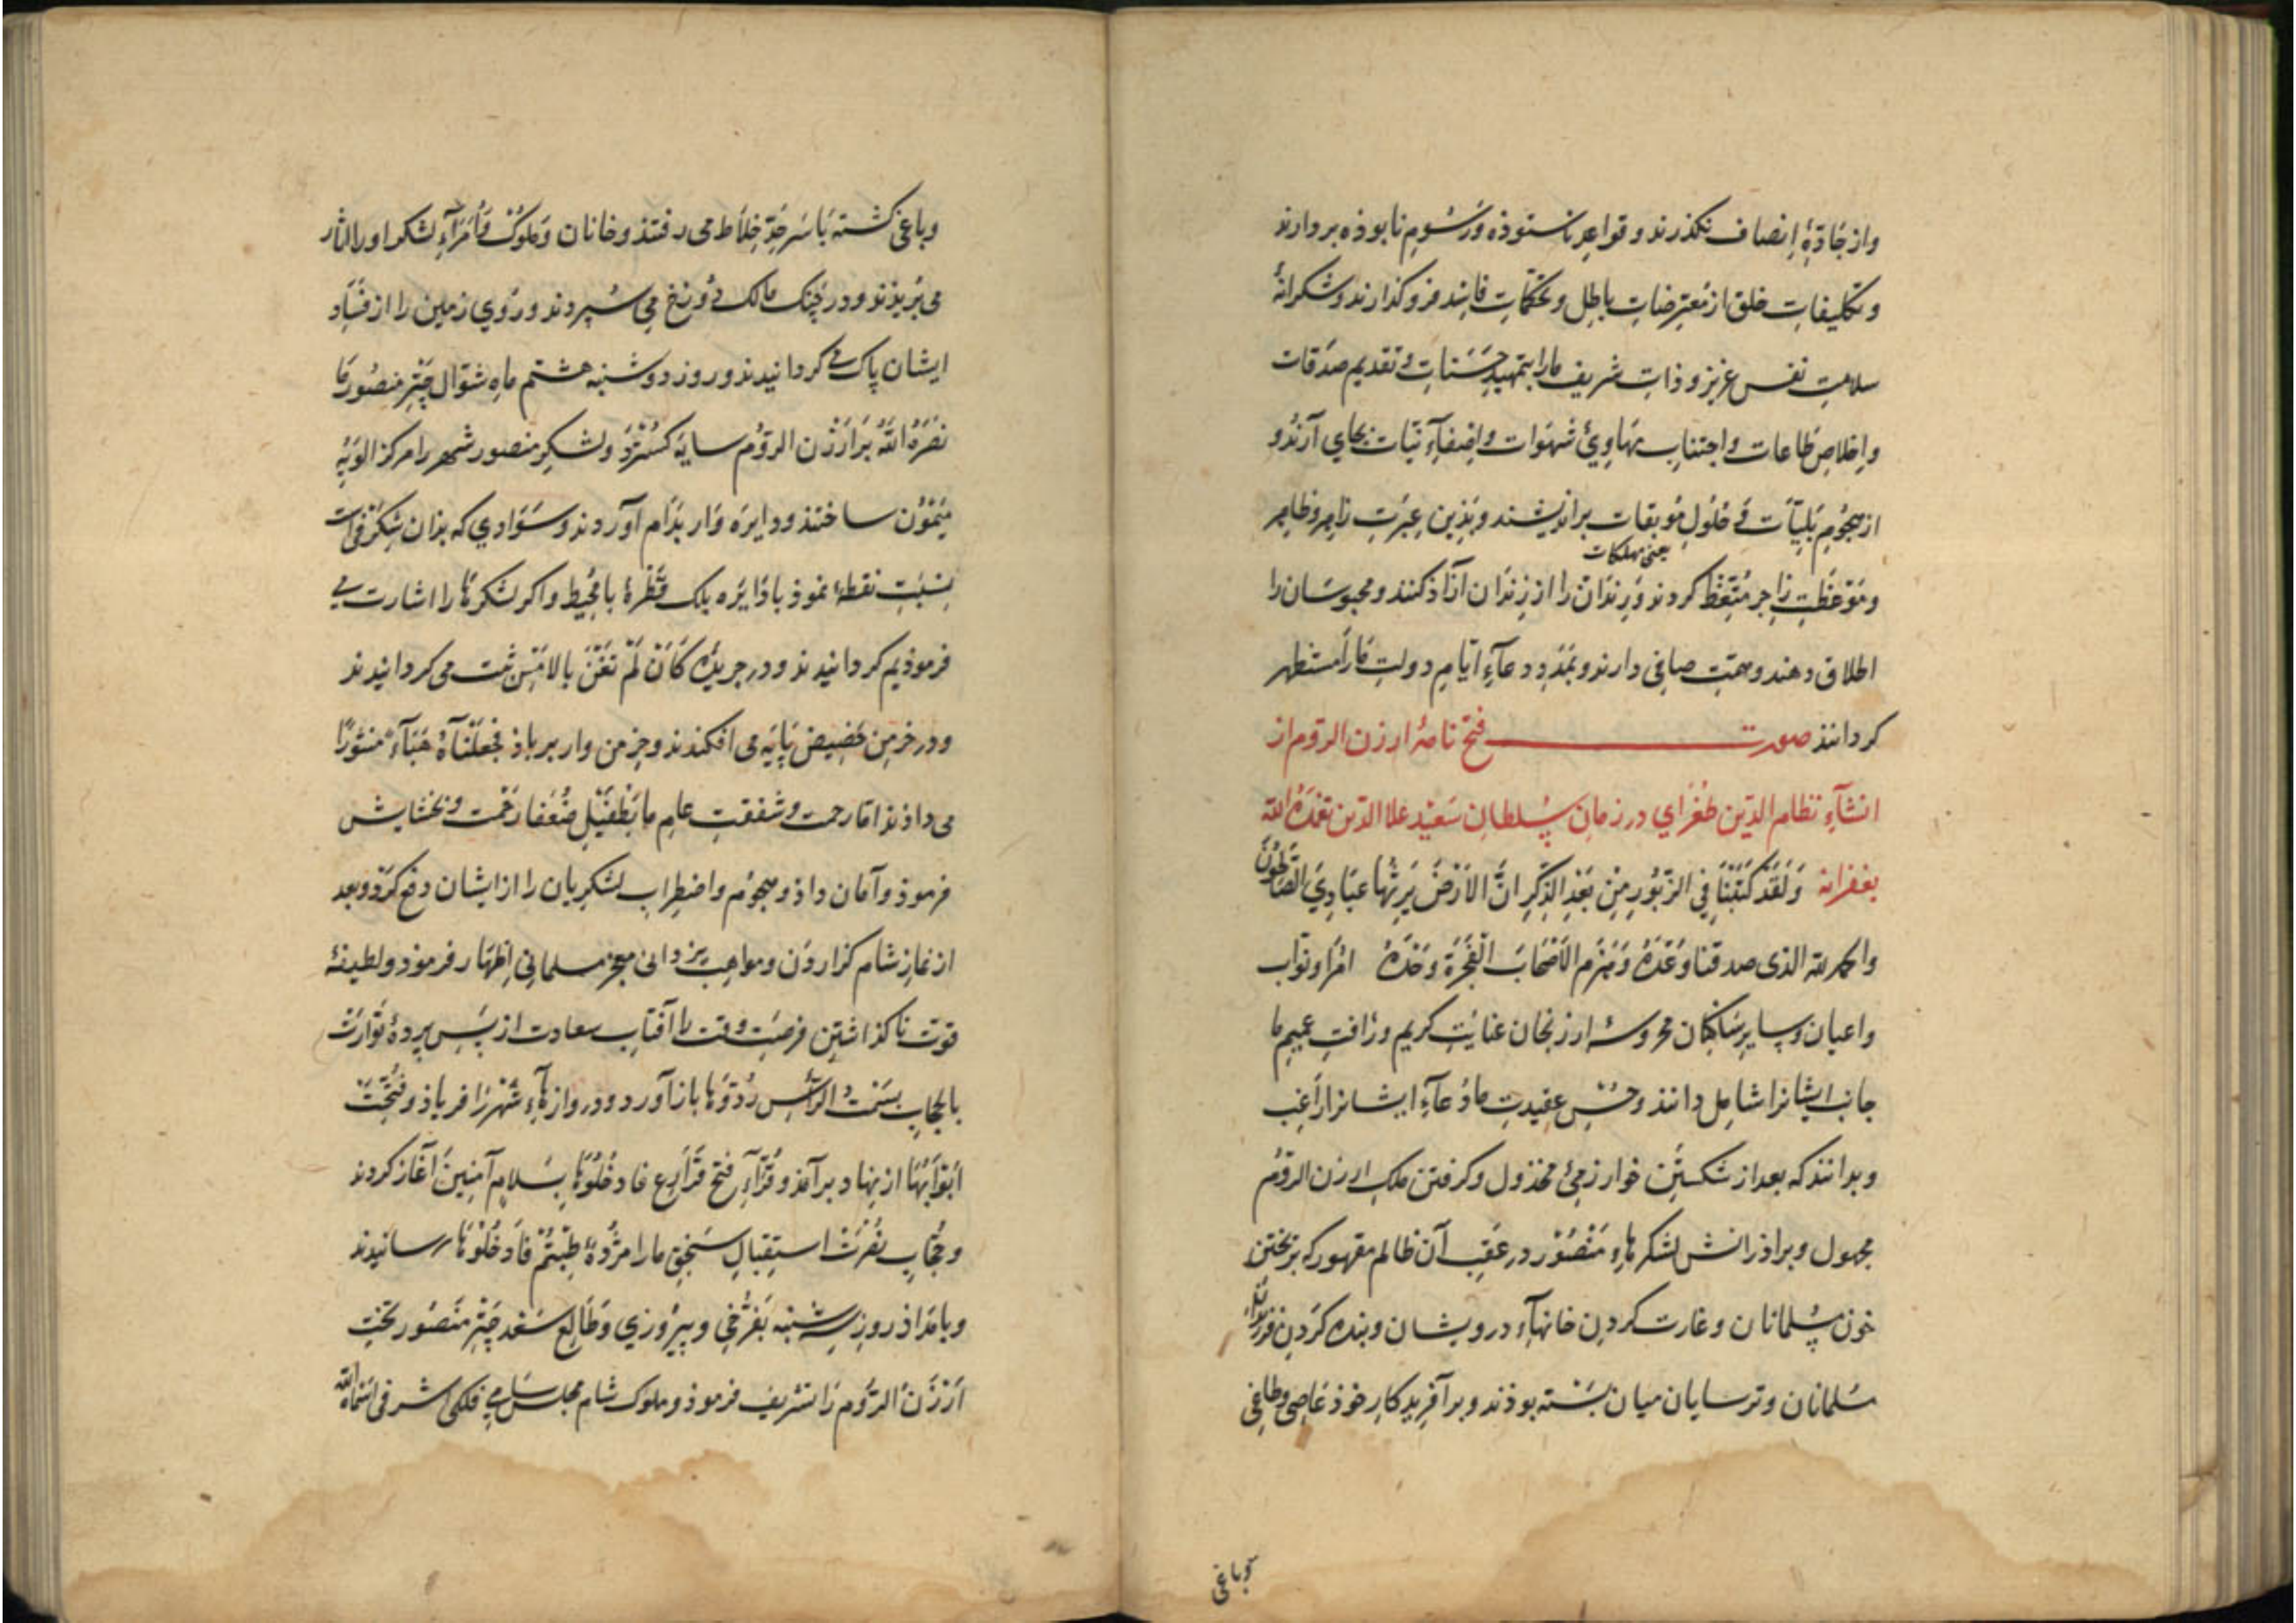 واز جَادّۀ اِنصاف نکذرند و قواعدِ ناستوذه وَرسُومِ نابوذه بردارند
و تکلیفاتِ خلق از مُعترضاتِ باطِل و تحکّماتِ فاسد فرو کذارند و شکرانۀ
سلامتِ نفس عزیز و ذاتِ شریف مارا بتمهیدِ حَسَنات و تقدیم صَدَقات
واِخلاصِ طاعات و اجتنابِ مهاویٔ شهَوات و اِضفآءِ نیّات بجای آرَندُ و
از هجُومِ بَلیّات وَ حُلولِ مُوبقات براندیشند و بَذین عِبرَتِ زاهر و ظاهِر
یعنی مهلکات
ومَوْعظتِ زاجر مُتّعِظ کردند وَ رندان را از زندان آزاذ کنند و محبوسَان را
اطلاق دهند و همّتِ صافی دارند و بمَددِ دعآءِ ایّامِ دولتِ مَارا مستظهر
کردانند صورت فتح نامۀ ارزن الروم از
انشآءِ نظام الدّین طُغْرای در زمانِ سُلطانِ سَعیْد علا الدّین تغمّدَهُ الله
بغفرانه وَلَقَدْ کَتَبْنَا فِی الزّبُورِ مِنْ بَعْدِ الذِّکرِ انَّ الاَرْضَ یَرِثُها عبَادِیَ الصّالحُونَ
والحمد لله الذی صدقنا وَعْدَهُ وَهَزَم الاَصْحابَ الْفَجَرَة وَحْدَهُ امُرَا و نوّاب
و اعیان و سایرِ سَاکنان محروسۀ ارزنجان عنایَتِ کریم و رٔافتِ عمیمِ ما
جانب ایشانرا شامِل دانند و حُسْنِ عقیدتِ ما دُعآءِ ایشانرا رَاغِب
و بدانند که بعد از شکستَنِ خوارزمیٔ مخذول و کرفتن ملکِ ارزن الروُم
مجهول و براذرانش لشکرهاءِ مَنْصُوْر در عَقِبِ آن ظالم مقهور که بریختن
خون مسُلمانان و غارت کردنِ خانهآءِ درویشان و بنده کرَدنِ فرزندان
مسَلمانان و ترسایان میان بَسْته بوذند و بر آفریدکارِ خوذ عَاصِی و طاغِی
وباغی
وباغی کشته تَا سَرحَدِّ خِلاَط می رفتند و خانان وَ ملوک وَ اُمَرَآءِ لشکرِ او را
می بُریذند و در چنک مالک دُوزخ می سُپردند و رُویِ زمین را از فسَاد
ایشان پاک می کردانیدند و روز دوشنبه هشتم ماهِ شوّال چترِ منصُورِ مَا
نصَرَهُ اللهُ بَر اَرْزن الروُم سایۀ کسْتَرْد و لشکرِ منصور شهر را مرکز الویۀ
میْمُوْن ساختند و دایرَه وَار بدَام آوردند و سَوَادی که بذان شکرْفی است
بنسْبَتِ نقطۀ نموذ باذایرَه بلک قطرۀ با مُحیِط و اکر لشکرهَا را اشارت می
فرموذیم کردانیدند و در جریدۀ کَاَنْ لَمْ تَغْنَ بالاَمْسِ ثبت می کردانیدند
و در خرمنِ حَضِیضِ پایَه می افکندند و خرمن وار بر باذ فجعَلْنَاهُ هَبَآءً منثُورًا
می داذند امّا رحمت و شفقتِ عامِ ما بَطُفَیْلِ ضُعَفا رَحْمت و بخشایش
فرموذ و اَمان داذ و هجوُم و اضطِرابِ لشکرِیان را از ایشان دفع کرَد و بعد
از نمازِ شام کزاردَن و مواهبِ یزدانی معجز سلمانی اِظهَار فرموذ و لطیفۀ
قوت ناکذاشتنِ فرصَتِ وقت را آفتابِ سعادت از پَسِ پردۀ تَوارَتْ
بالحجاب بسَمْتُ الراسِ رُدّوُهَا باز آورد و دروازهآءِ شهْر زا فریاذ و فُتّحَتْ
اَبْوَابُهَا از نهاد بر آمَذ و قُرّآءِ فتح قَرَارِع فادخُلُوْهَا بِسَلامٍ آمِنِینَ آغاز کردند
و حُجّابِ نصْرَتْ استِقبالِ سَنجقِ ما را مژُدۀ طِبْتُمْ فَادْخُلُوْهَا رسانیدند
و بامدَاذ روزِ سِه شنبه بفَرّخی و پیرُوزی و طَالِع سَعْد چترِ مَنْصُور تختِ
اَرْزَنُ الرّوُم رَا تشریف فرموذ و ملوک شام مجلسِ سَامیِ فلکی اشرفی